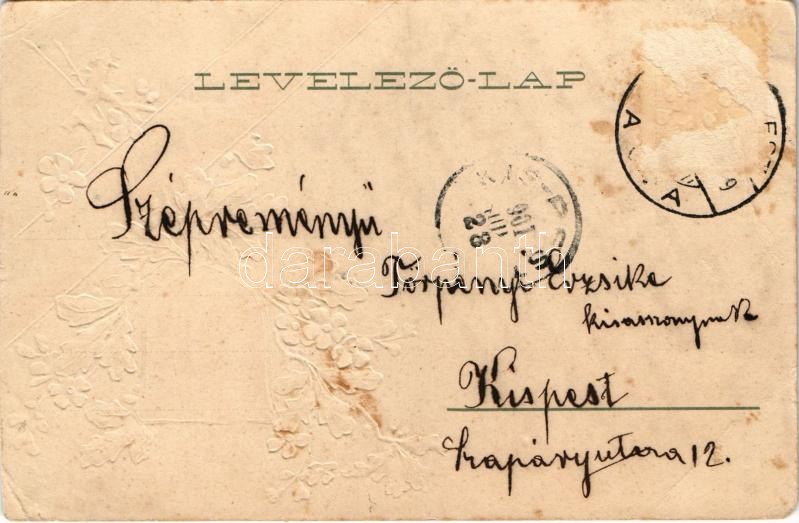 LEVELEZŐ-LAP
Szépreményű
Törpényi Erzsike
kisasszonynak
Kispest
Szapáryutcza 12.
901
VIII
28
darabanth